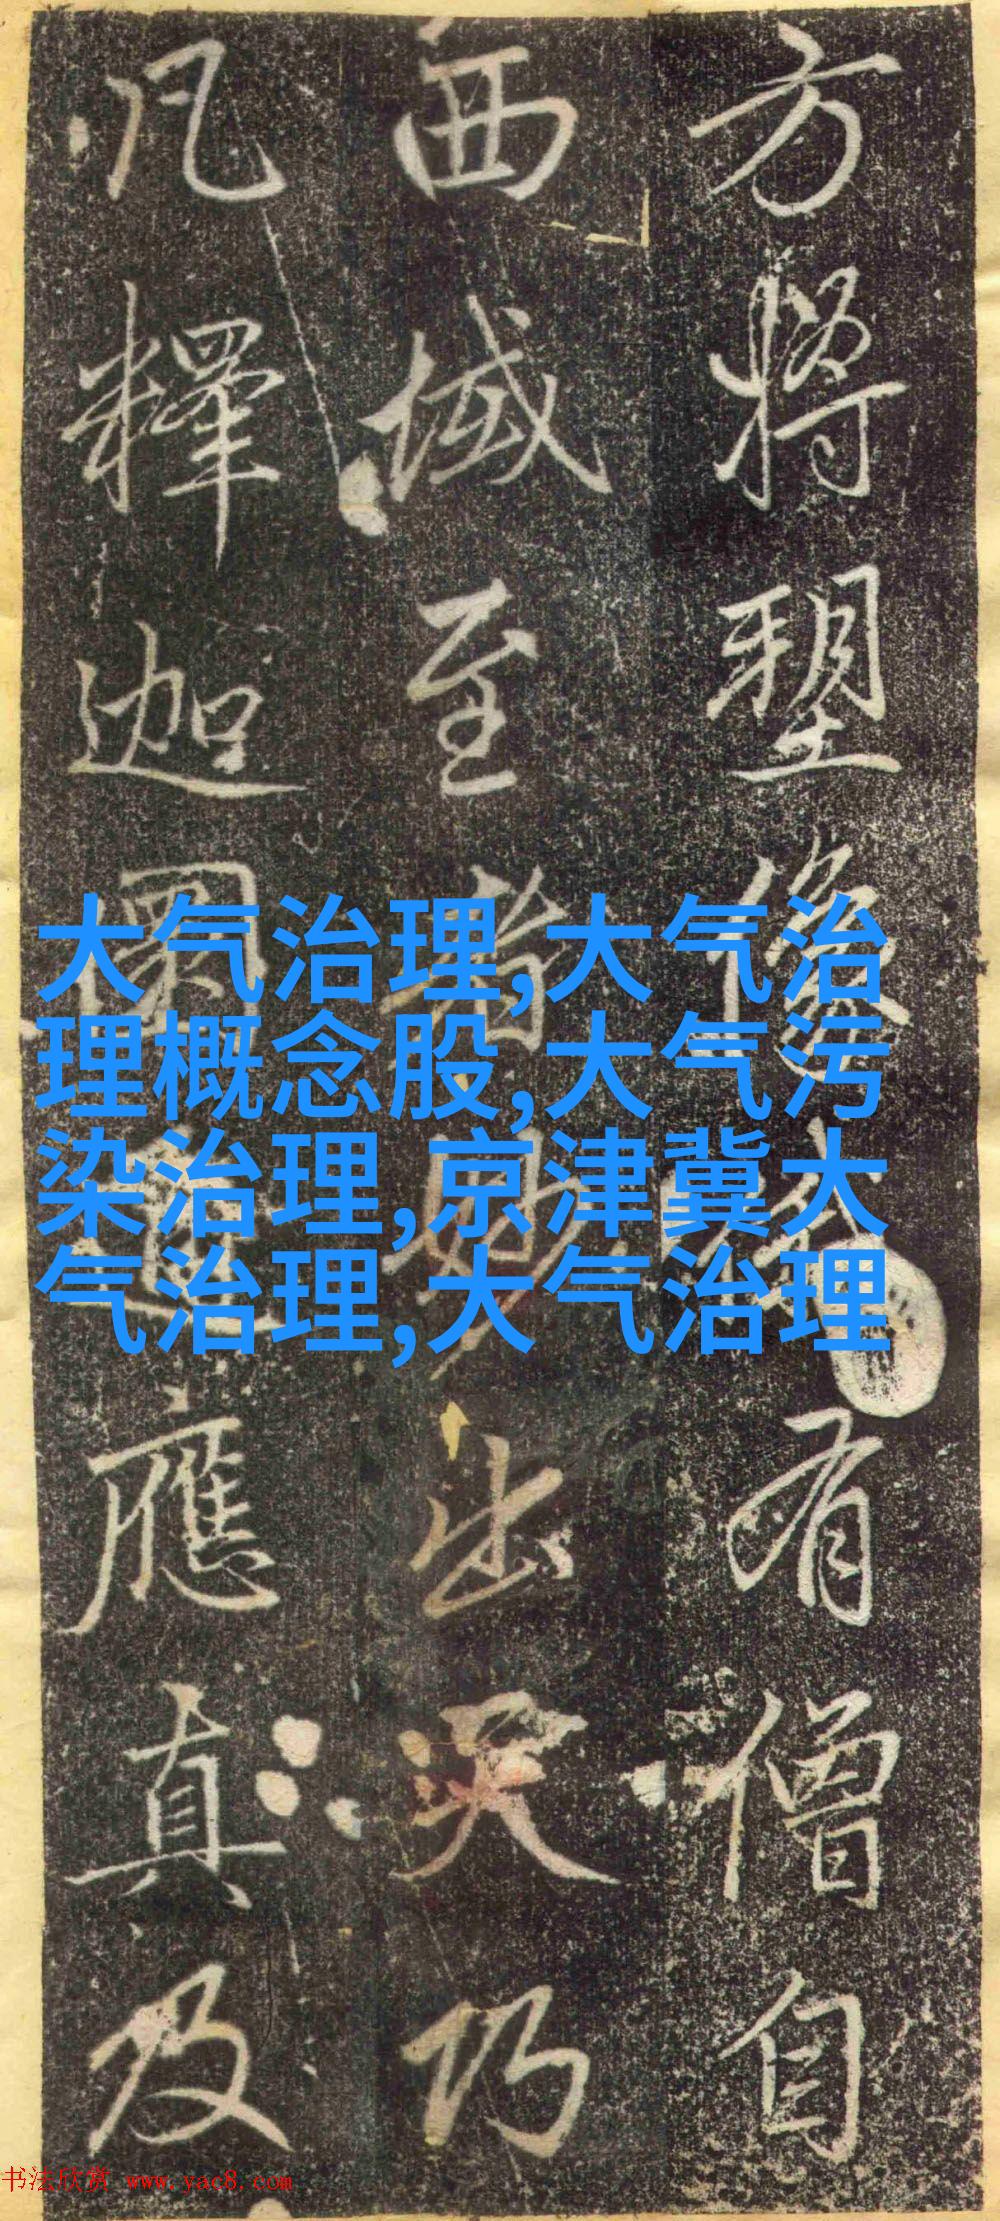 方将塑像又有僧自
西域至者妙出天巧
凡釋迦櫚遮應真及
大气治理,大气治
理概念股,大气污
染治理,京津冀大
气治理,大气治理
书法欣赏 www.yac8.com